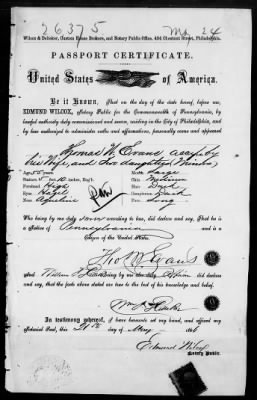 26375 May 24
Wilcox & Custom House Brokers, and Notary Public Office, 404 Chestnut Street, Philadelphia.
PASSPORT CERTIFICATE.
United States of America.
Be it Known, That on the day of the date hereof, before me,
EDMUND WILCOX, Notary Public for the Commonwealth of Pennsylvania, by
lawful authority duly commissioned and sworn, residing in the City of Philadelphia, and
by law authorized to administer oaths and affirmations, personally came and appeared
Thomas W. Evans accomp by
his Wife, and two daughters Minors,
Age, years Mouth Large
Stature, Eng'l. Chin Medium
Forehead High Hair Dark
Eyes Hazel Complexion Dark
Nose Aquiline Face Long
Who being by me duly sworn according to law, did declare and say, That he is a
Native of Pennsylvania and a
Citizen of the United States.
Tho W Evans
and William being by me duly did declare
and say, that the facts above stated are true to the best of his knowledge and belief.
Wm
In testimony whereof, I have hereunto set my hand, and affixed my
Notarial Seal, this day of May
Edmund Wilcox
Notary Public.